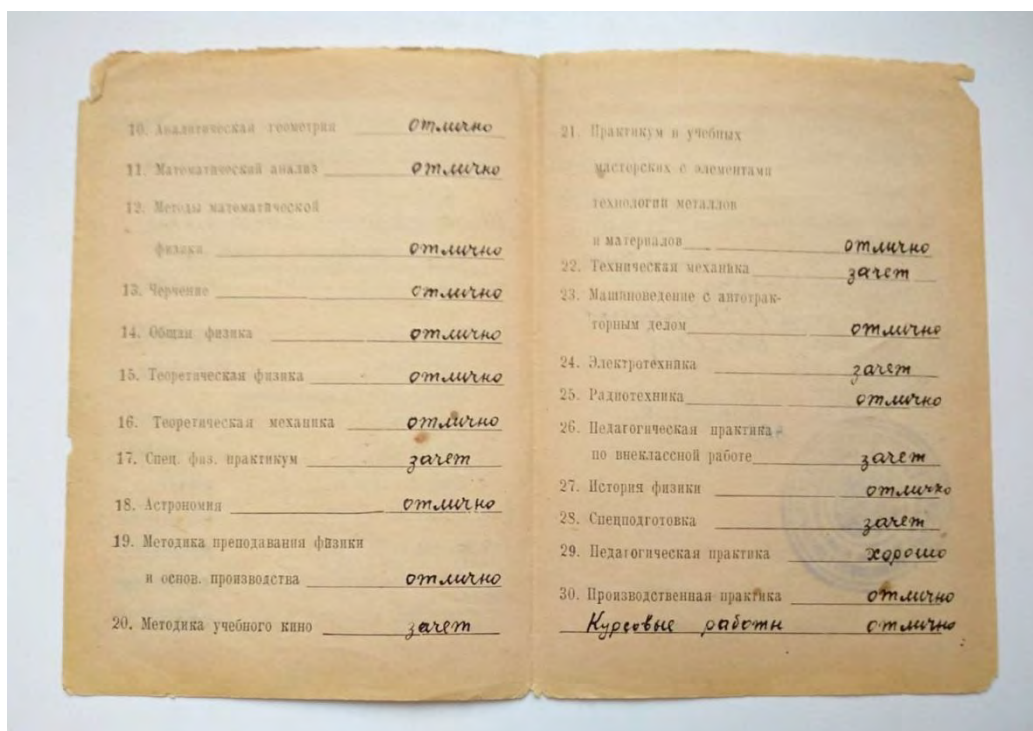 10. Аналитическая геометрия отлично
11. Математический анализ отлично
12. Методы математической
физики отлично
13. Черчение отлично
14. Общая физика отлично
15. Теоретическая физика отлично
16. Теоретическая механика отлично
17. Спец. физ. практикум зачет
18. Астрономия отлично
19. Методика преподавания физики
и основ. производства отлично
20. Методика учебного кино зачет
21. Практикум в учебных
мастерских с элементами
технологии металлов
и материалов отлично
22. Техническая механика зачет
23. Машиноведение с автотрак-
торным делом отлично
24. Электротехника зачет
25. Радиотехника отлично
26. Педагогическая практика
по внеклассной работе зачет
27. История физики отлично
28. Спецподготовка зачет
29. Педагогическая практика хорошо
30. Производственная практика отлично
Курсовые работы отлично